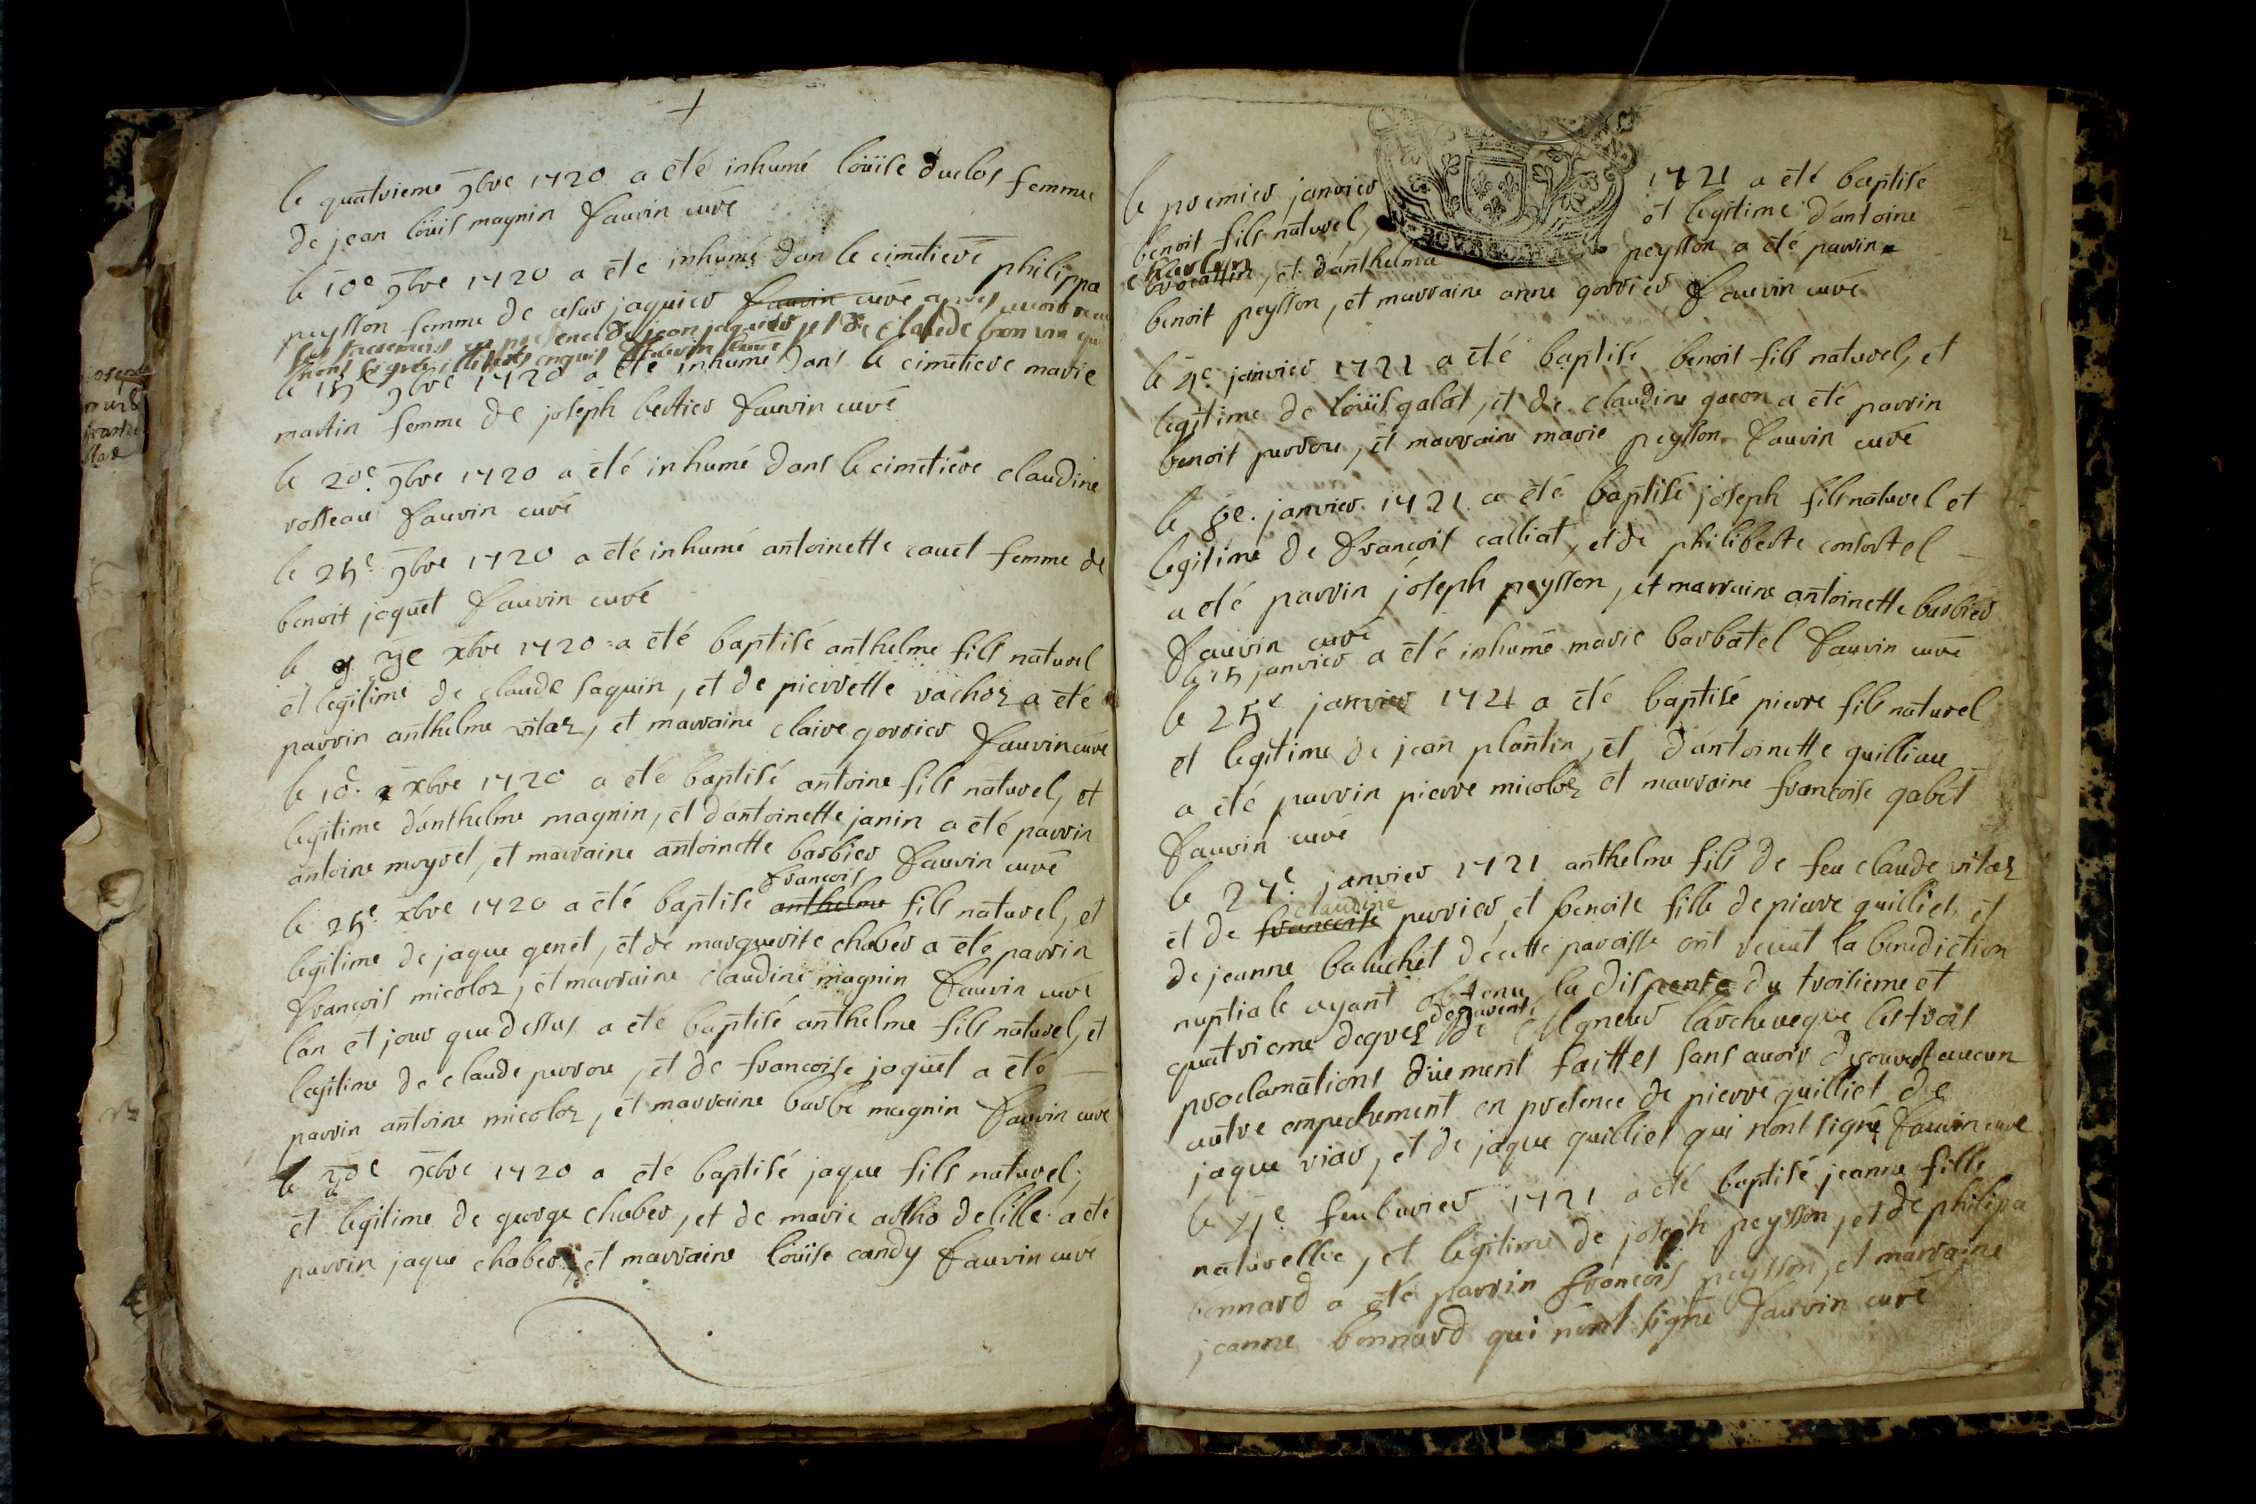 le quatrieme 9bre 1720 a eté inhumé loüise duclos femme
de jean loüis magnin fauvin curé
le 10e 9bre 1720 a ete inhumé dan le cimetiere philippa
peysson femme de cesar jaquier fauvin curé apres avoir receu
les sacremens en presence de jean jaquier et de claude qui
n'ont signé enquis fauvin curé
le 15e 9bre 1720 a eté inhumé dans le cimetiere marie
martin femme de joseph bertier fauvin curé
le 20e 9bre 1720 a eté inhumé dans le cimetiere claudine
rosseau fauvin curé
le 25e 9bre 1720 a eté inhumé antoinette cauet femme de
benoit joquet fauvin curé
le xbre 1720 a eté baptisé anthelme fils naturel
et legitime de claude saquin, et de pierrette vachoz a eté
parrin anthelme vitaz, et marraine claire gorrier fauvin curé
le 10e xbre 1720 a eté baptisé antoine fils naturel, et
legitime d'anthelme magnin, et d'antoinette janin a eté parrin
antoine moyret, et marraine antoinette barbier fauvin curé
françois
le 25e xbre 1720 a eté baptise anthelme fils naturel, et
legitime de jaque genet, et de marguerite chaber a eté parrin
françois micoloz, et marraine claudine magnin fauvin curé
lan et jour que dessus a eté baptisé anthelme fils naturel, et
legitime de claude perrou, et de francoise joquet a eté
parrin antoine micoloz, et marraine barbe magnin fauvin curé
le xbre 1720 a eté baptisé jaque fils naturel,
et legitime de george chaber, et de marie artho delille a eté
parrin jaque chaber, et marraine loüise candy fauvin curé
le premier janvier 1721 a eté baptisé
benoit fils naturel, et legitime d'antoine
et d'anthelma peysson a eté parrin
benoit peysson, et marraine anne gorrier fauvin curé
le 4e janvier 1721 a eté baptisé benoit fils naturel, et
legitime de loüis galat, et de claudine gacon a eté parrin
benoit perrou, et marraine marie peysson fauvin curé
le 8e janvier 1721 a eté baptisé joseph fils naturel et
legitime de francois calliat, et de philiberte confortel
a eté parrin joseph peysson, et marraine antoinette barbier
fauvin curé
le 15 janvier a eté inhumé marie barbatel fauvin curé
le 25e janvier 1721 a eté baptisé pierre fils naturel
et legitime de jean plantin, et d'antoinette quilliau
a eté parrin pierre micoloz et marraine francoise gabet
fauvin curé
le 27e janvier 1721 anthelme fils de feu claude vitaz
claudine
et de francoise perrier, et benoite fille de pierre quilliet, et
de jeanne baluchet de cette paroisse ont receut la benediction
nuptiale ayant obtenu la dispense du troisieme et
de parenté
quatrieme degrez de Mgneur l'archeveque les trois
proclamations düement faittes sans avoir decouvert aucun
autre empechement en presence de pierre quilliet de
jaque viar, et de jaque quilliet qui n'ont signé fauvin curé
le 4e feubvrier 1721 a eté baptisé jeanne fille
naturelle, et legitime de joseph peysson, et de philipa
bonnard a eté parrin francois peysson, et marraine
jeanne bonnard qui n'ont signé fauvin curé